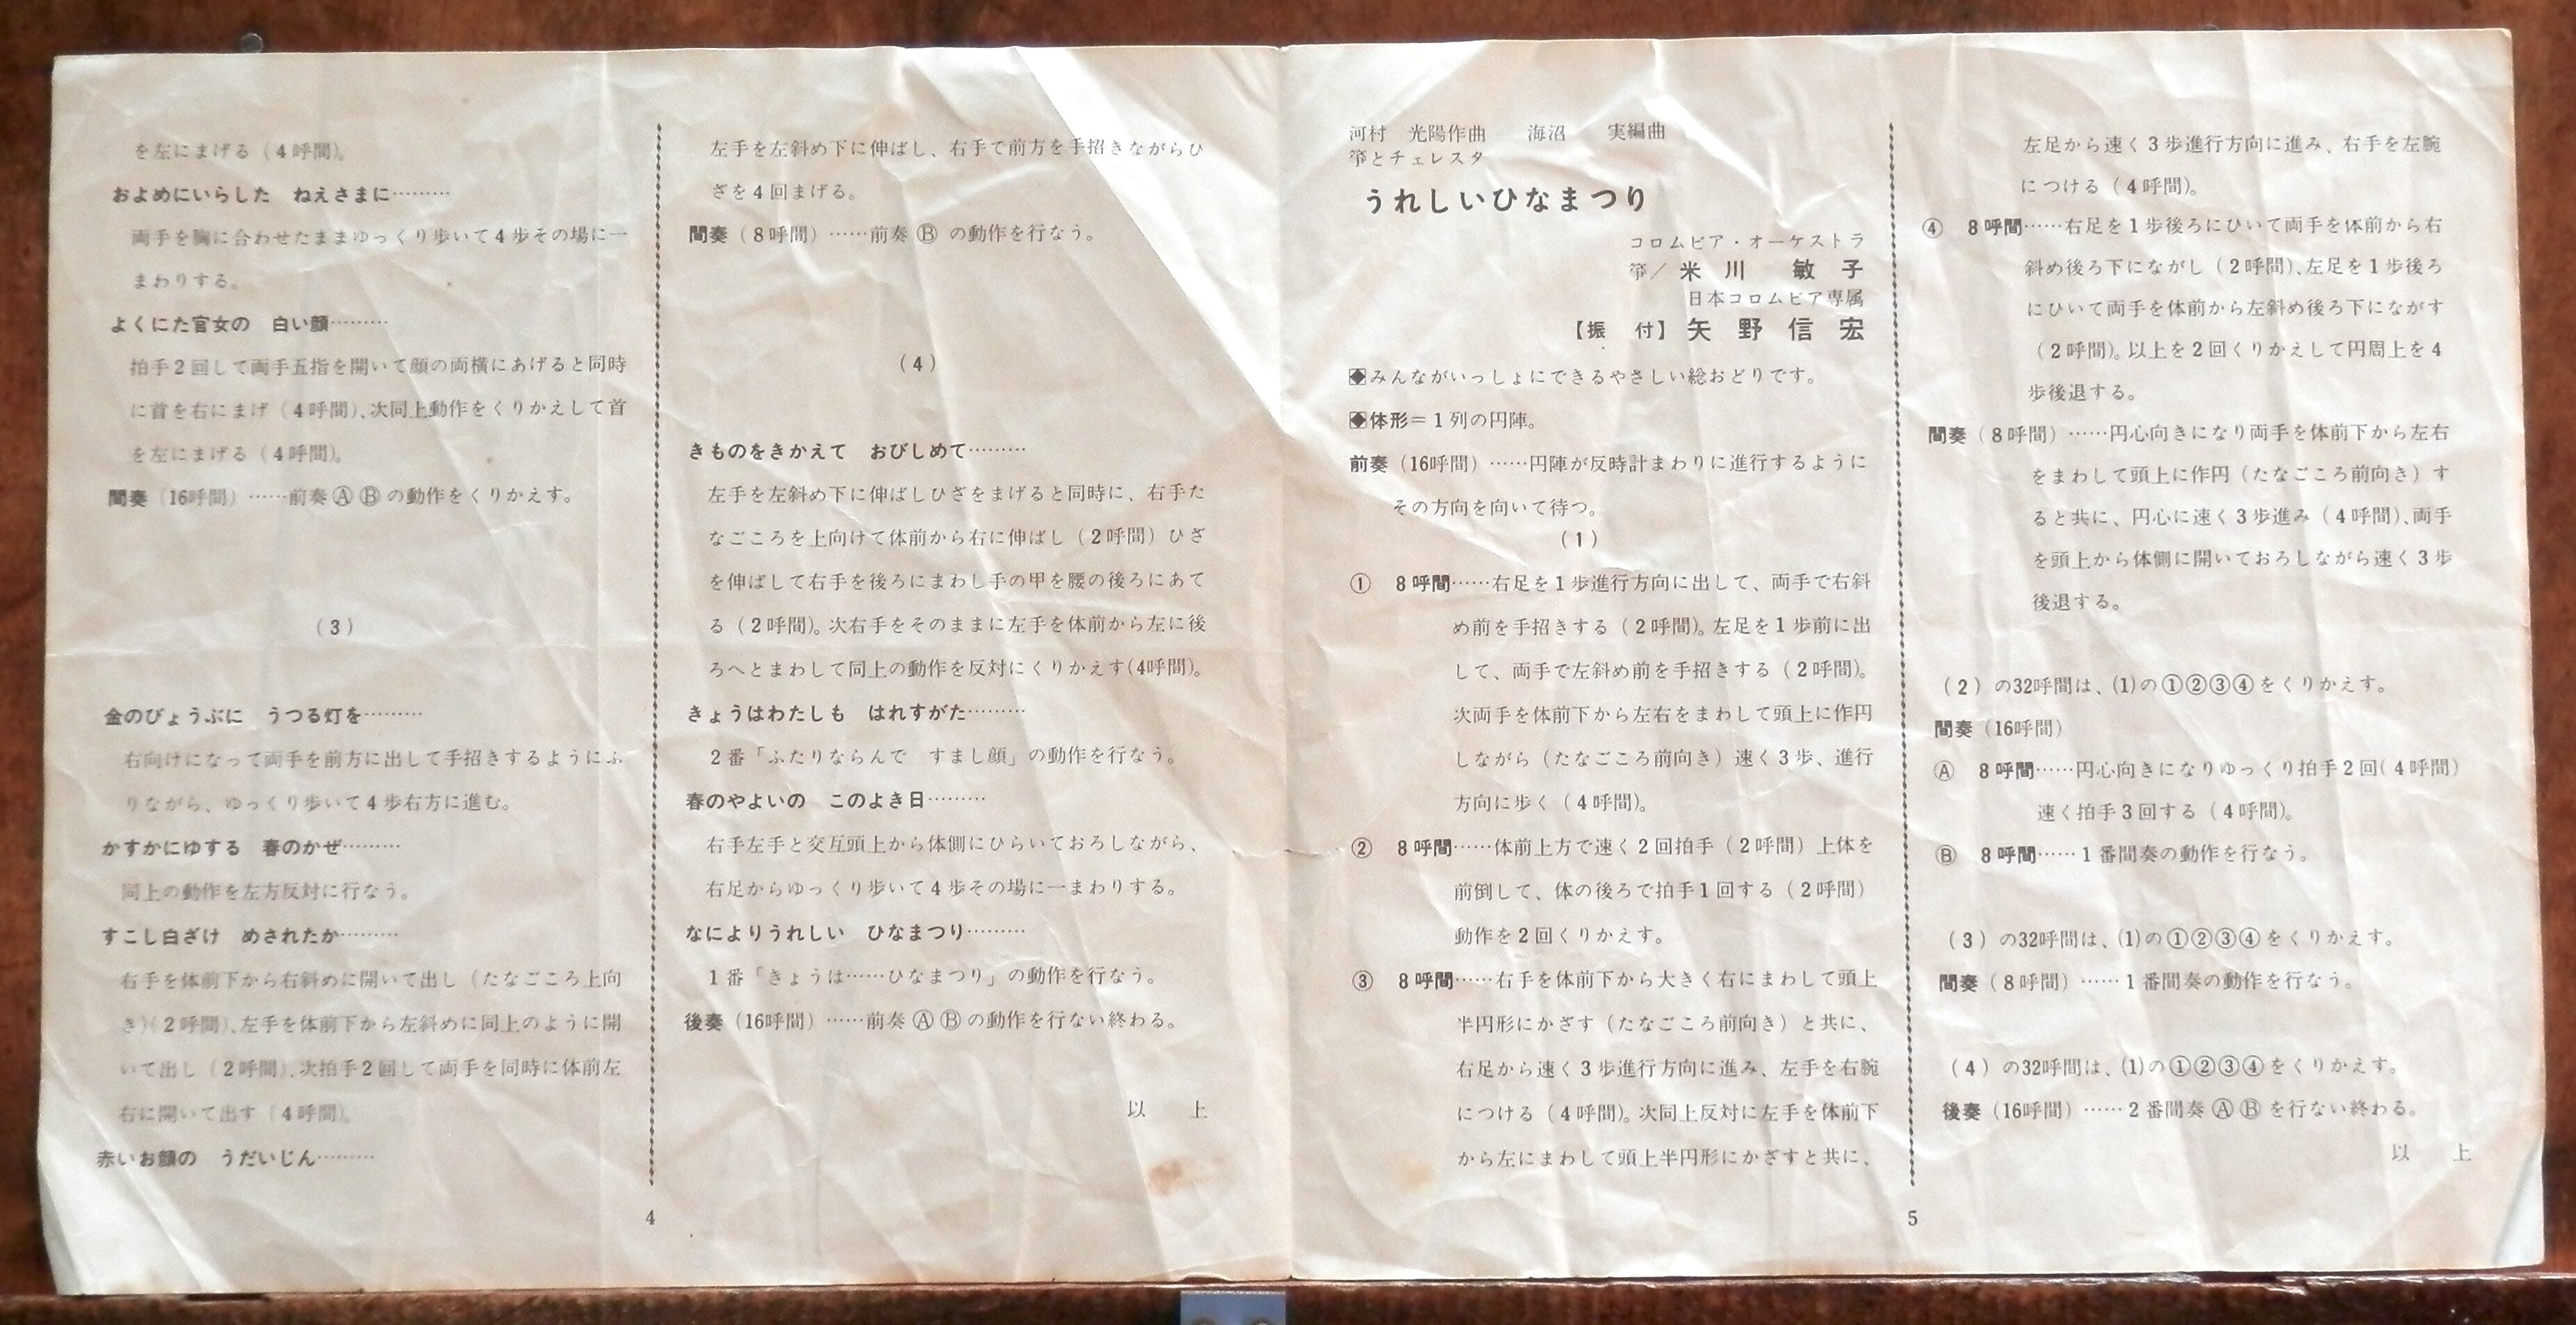 を左にまげる（4呼間）。
およめにいらした　ねえさまに………
両手を胸に合わせたままゆっくり歩いて4歩その場に一
まわりする。
よくにた官女の　白い顔………
拍手2回して両手五指を開いて顔の両横にあげると同時
に首を右にまげ（4呼間）、次同上動作をくりかえして首
を左にまげる（4呼間）。
間奏（16呼間）……前奏ⒶⒷの動作をくりかえす。
（3）
金のびょうぶに　うつる灯を………
右向けになって両手を前方に出して手招きするようにふ
りながら、ゆっくり歩いて4歩右方に進む。
かすかにゆする　春のかぜ………
同上の動作を左方反対に行なう。
すこし白ざけ　めされたか………
右手を体前下から右斜めに開いて出し（たなごころ上向
き）（2呼間）、左手を体前下から左斜めに同上のように開
いて出し（2呼間）、次拍手2回して両手を同時に体前左
右に開いて出す（4呼間）。
赤いお顔の　うだいじん………
左手を左斜め下に伸ばし、右手で前方を手招きながらひ
ざを4回まげる。
間奏（8呼間）……前奏Ⓑの動作を行なう。
（4）
きものをきかえて　おびしめて………
左手を左斜め下に伸ばしひざをまげると同時に、右手た
なごころを上向けて体前から右に伸ばし（2呼間）ひざ
を伸ばして右手を後ろにまわし手の甲を腰の後ろにあて
る（2呼間）。次右手をそのままに左手を体前から左に後
ろへとまわして同上の動作を反対にくりかえす(4呼間)。
きょうはわたしも　はれすがた………
2番「ふたりならんで　すまし顔」の動作を行なう。
春のやよいの　このよき日………
右手左手と交互頭上から体側にひらいておろしながら、
右足からゆっくり歩いて4歩その場に一まわりする。
なによりうれしい　ひなまつり………
1番「きょうは……ひなまつり」の動作を行なう。
後奏（16呼間）……前奏ⒶⒷの動作を行ない終わる。
以　上
4
河村　光陽作曲　海沼　実編曲
箏とチェレスタ
うれしいひなまつり
コロムビア・オーケストラ
箏／米川　敏子
日本コロムビア専属
【振　付】矢野信宏
◆みんながいっしょにできるやさしい総おどりです。
◆体形＝1列の円陣。
前奏（16呼間）……円陣が反時計まわりに進行するように
その方向を向いて待つ。
（1）
①　8呼間……右足を1歩進行方向に出して、両手で右斜
め前を手招きする（2呼間）。左足を1歩前に出
して、両手で左斜め前を手招きする（2呼間）。
次両手を体前下から左右をまわして頭上に作円
しながら（たなごころ前向き）速く3歩、進行
方向に歩く（4呼間）。
②　8呼間……体前上方で速く2回拍手（2呼間）上体を
前倒して、体の後ろで拍手1回する（2呼間）
動作を2回くりかえす。
③　8呼間……右手を体前下から大きく右にまわして頭上
半円形にかざす（たなごころ前向き）と共に、
右足から速く3歩進行方向に進み、左手を右腕
につける（4呼間）。次同上反対に左手を体前下
から左にまわして頭上半円形にかざすと共に、
左足から速く3歩進行方向に進み、右手を左腕
につける（4呼間）。
④　8呼間……右足を1歩後ろにひいて両手を体前から右
斜め後ろ下にながし（2呼間）、左足を1歩後ろ
にひいて両手を体前から左斜め後ろ下にながす
（2呼間）。以上を2回くりかえして円周上を4
歩後退する。
間奏（8呼間）……円心向きになり両手を体前下から左右
をまわして頭上に作円（たなごころ前向き）す
ると共に、円心に速く3歩進み（4呼間）、両手
を頭上から体側に開いておろしながら速く3歩
後退する。
（2）の32呼間は、(1)の①②③④をくりかえす。
間奏（16呼間）
Ⓐ　8呼間……円心向きになりゆっくり拍手2回（4呼間）
速く拍手3回する（4呼間）。
Ⓑ　8呼間……1番間奏の動作を行なう。
（3）の32呼間は、(1)の①②③④をくりかえす。
間奏（8呼間）……1番間奏の動作を行なう。
（4）の32呼間は、(1)の①②③④をくりかえす。
後奏（16呼間）……2番間奏ⒶⒷを行ない終わる。
以　上
5